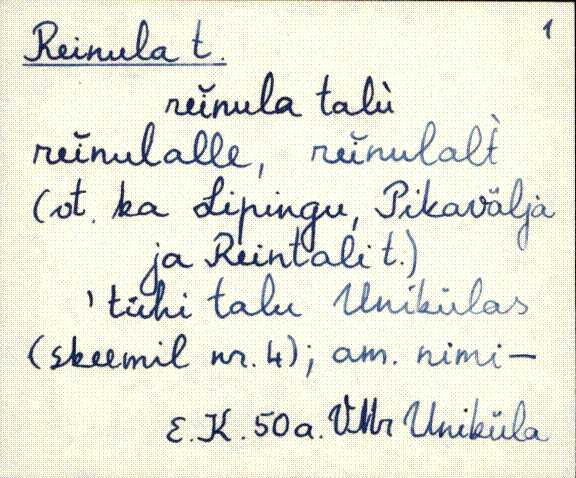 1
Reinula t.
reĭnula talù
reĭnulalle, reĭnulal̀t
(vt. ka Lipingu, Pikavälja
ja Reintali t.)
'tühi talu Unikülas
(skeemil nr. 4); am. nimi—
E.K. 50a. VMr Uniküla